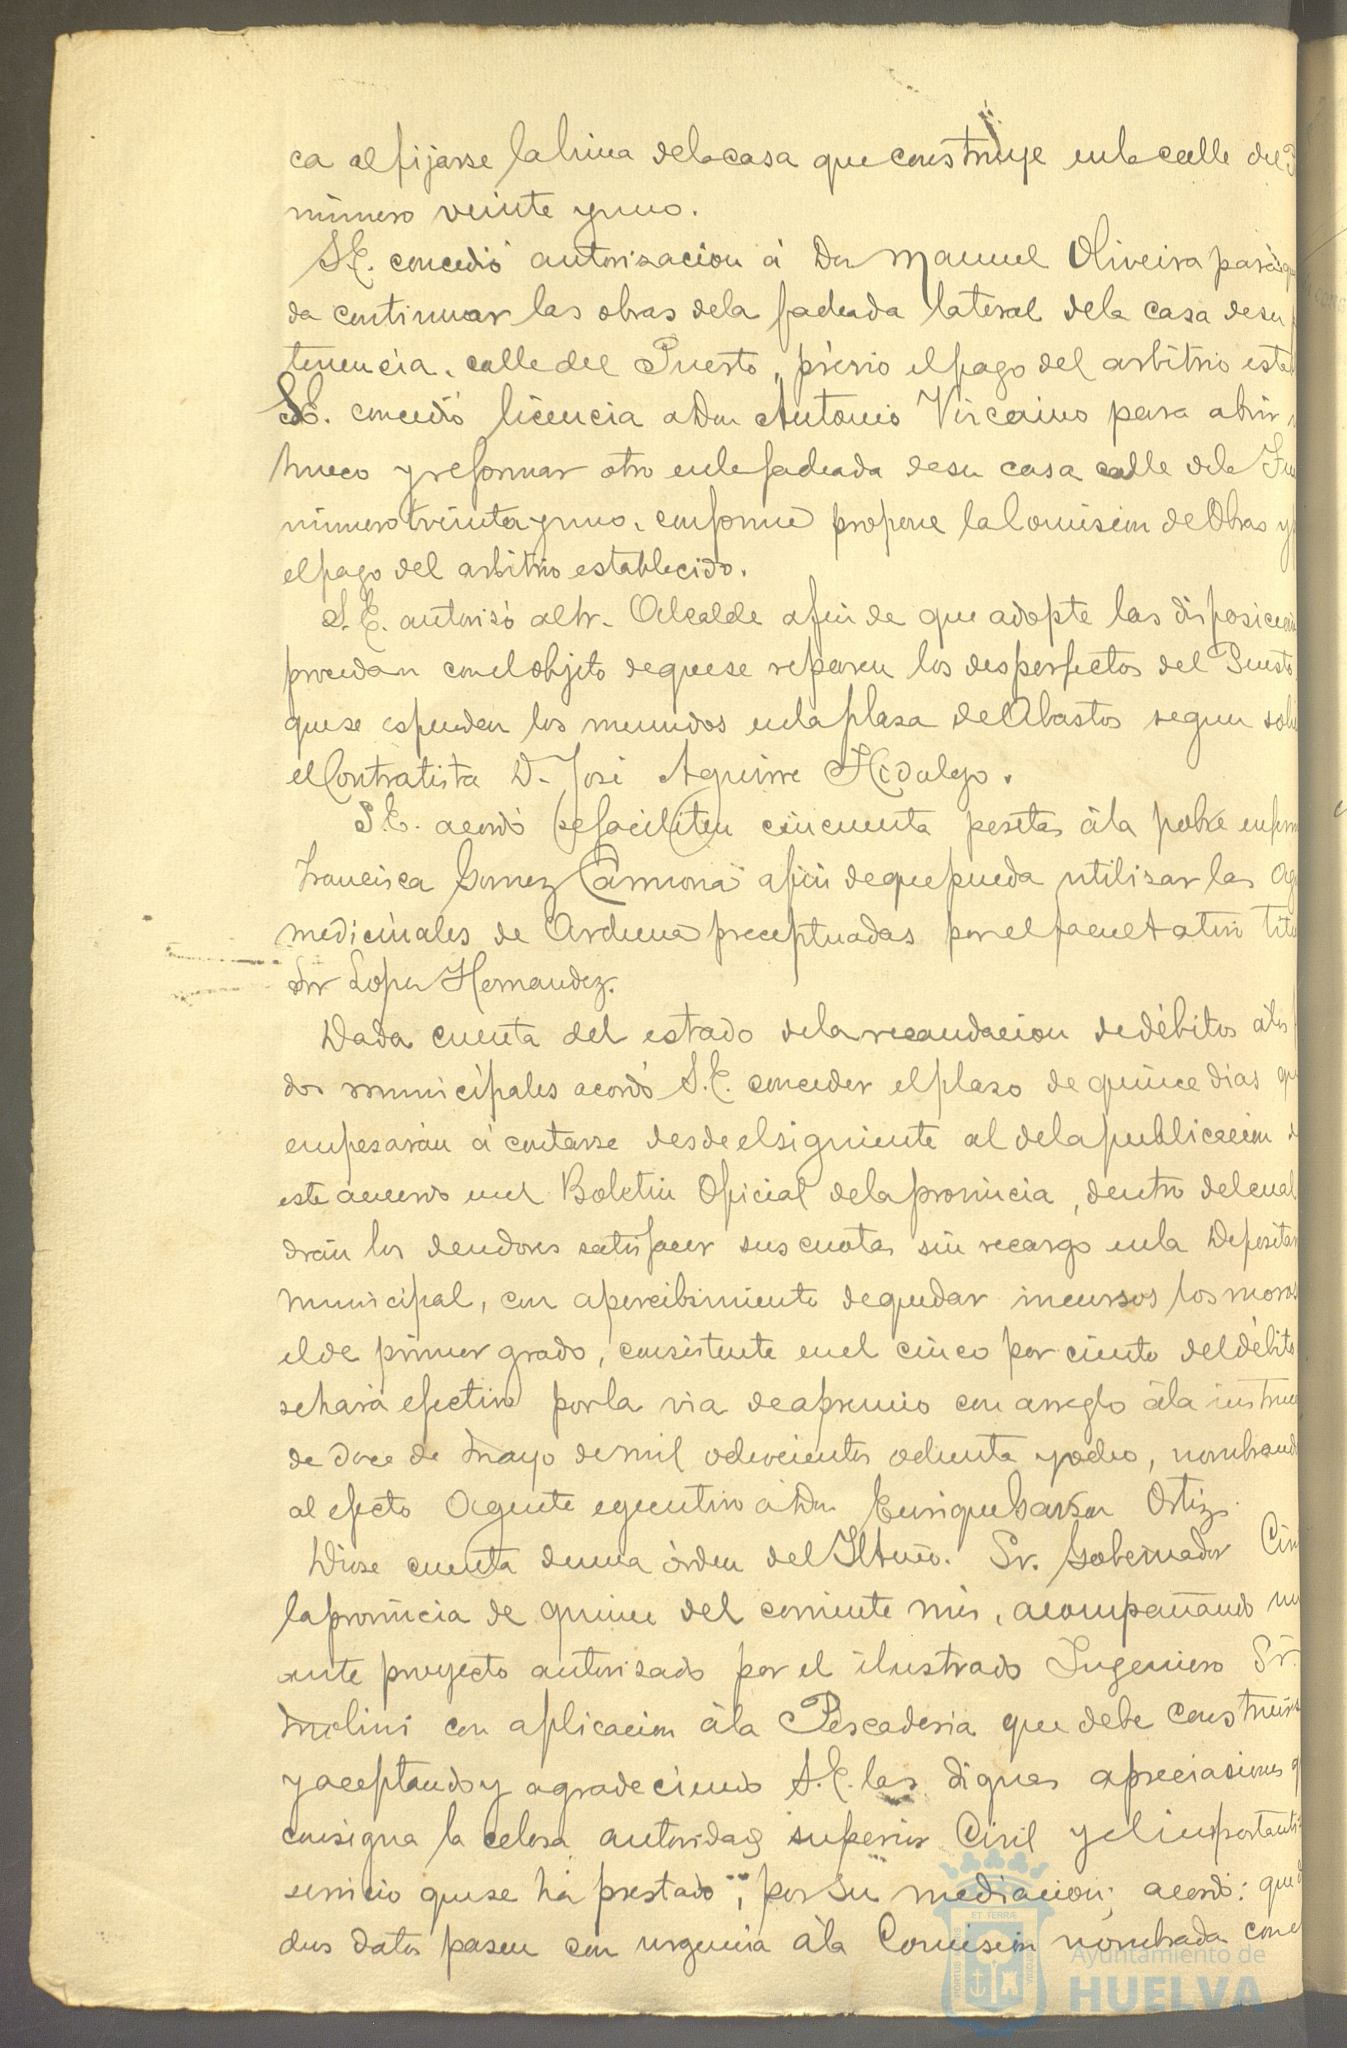 ca al fijarse la linea de la casa que construye en la calle del P
número veinte y uno.
S.E. concedió autorizacion á Don Manuel Oliveira para q
da continuar las obras de la fachada lateral de la casa de su p
tenencia, calle del Puerto, prévio el pago del arbitrio esta
S.E. concedió licencia a Don Antonio Vizcaino para abrir
hueco y reformar otro en la fachada de su casa calle de la Fu
número treinta y uno, conforme propone la Comision de Obras y
el pago del arbitrio establecido.
S.E. autorisó al Sr. Alcalde a fin de que adopte las disposicion
procedan con el objeto de que se reparen los desperfectos del Puesto
que se espenden los menudos en la plaza de Abastos segun soli
el Contratista D. José Aguirre Hidalgo.
S.E. acordó se faciliten cincuenta pesetas á la pobre enferm
Francisca Gomez Carmona a fin de que pueda utilizar las Ag
medicinales de Archena preceptuadas por el facultativo titu
Sr Lopez Hernandez.
Dada cuenta del estado de la recaudacion de débitos á los f
dos municipales acordó S.E. conceder el plazo de quince dias qu
empesarán á contarse desde el siguiente al de la publicacion d
este acuerdo en el Boletin Oficial de la provincia, dentro del cual
drán los deudores satisfacer sus cuotas sin recargo en la Depositar
municipal, con apercibimiento de quedar incursos los moros
el de primer grado, consistente en el cinco por ciento del débito
se hará efectivo por la via de apremio con arreglo á la instruc
de doce de Mayo de mil ochocientos ochenta y ocho, nombrand
al efecto Agente egecutivo á Don Enrique Garzon Ortiz.
Diose cuenta de una órden del Iltmo. Sr. Gobernador Civi
la provincia de quince del corriente mes, acompañando un
ante proyecto autorisado por el ilustrado Ingeniero Sr.
Molini con aplicacion á la Pescaderia que debe construirs
y aceptando y agradeciendo S.E. las dignas apreciasiones q
consigna la celosa autoridad superior Civil y el importanti
servicio que se ha prestado, por su mediacion; acordó: que d
chos datos pasen con urgencia á la Comision nombrada con e
ET TERRÆ
Ayuntamiento de
HUELVA